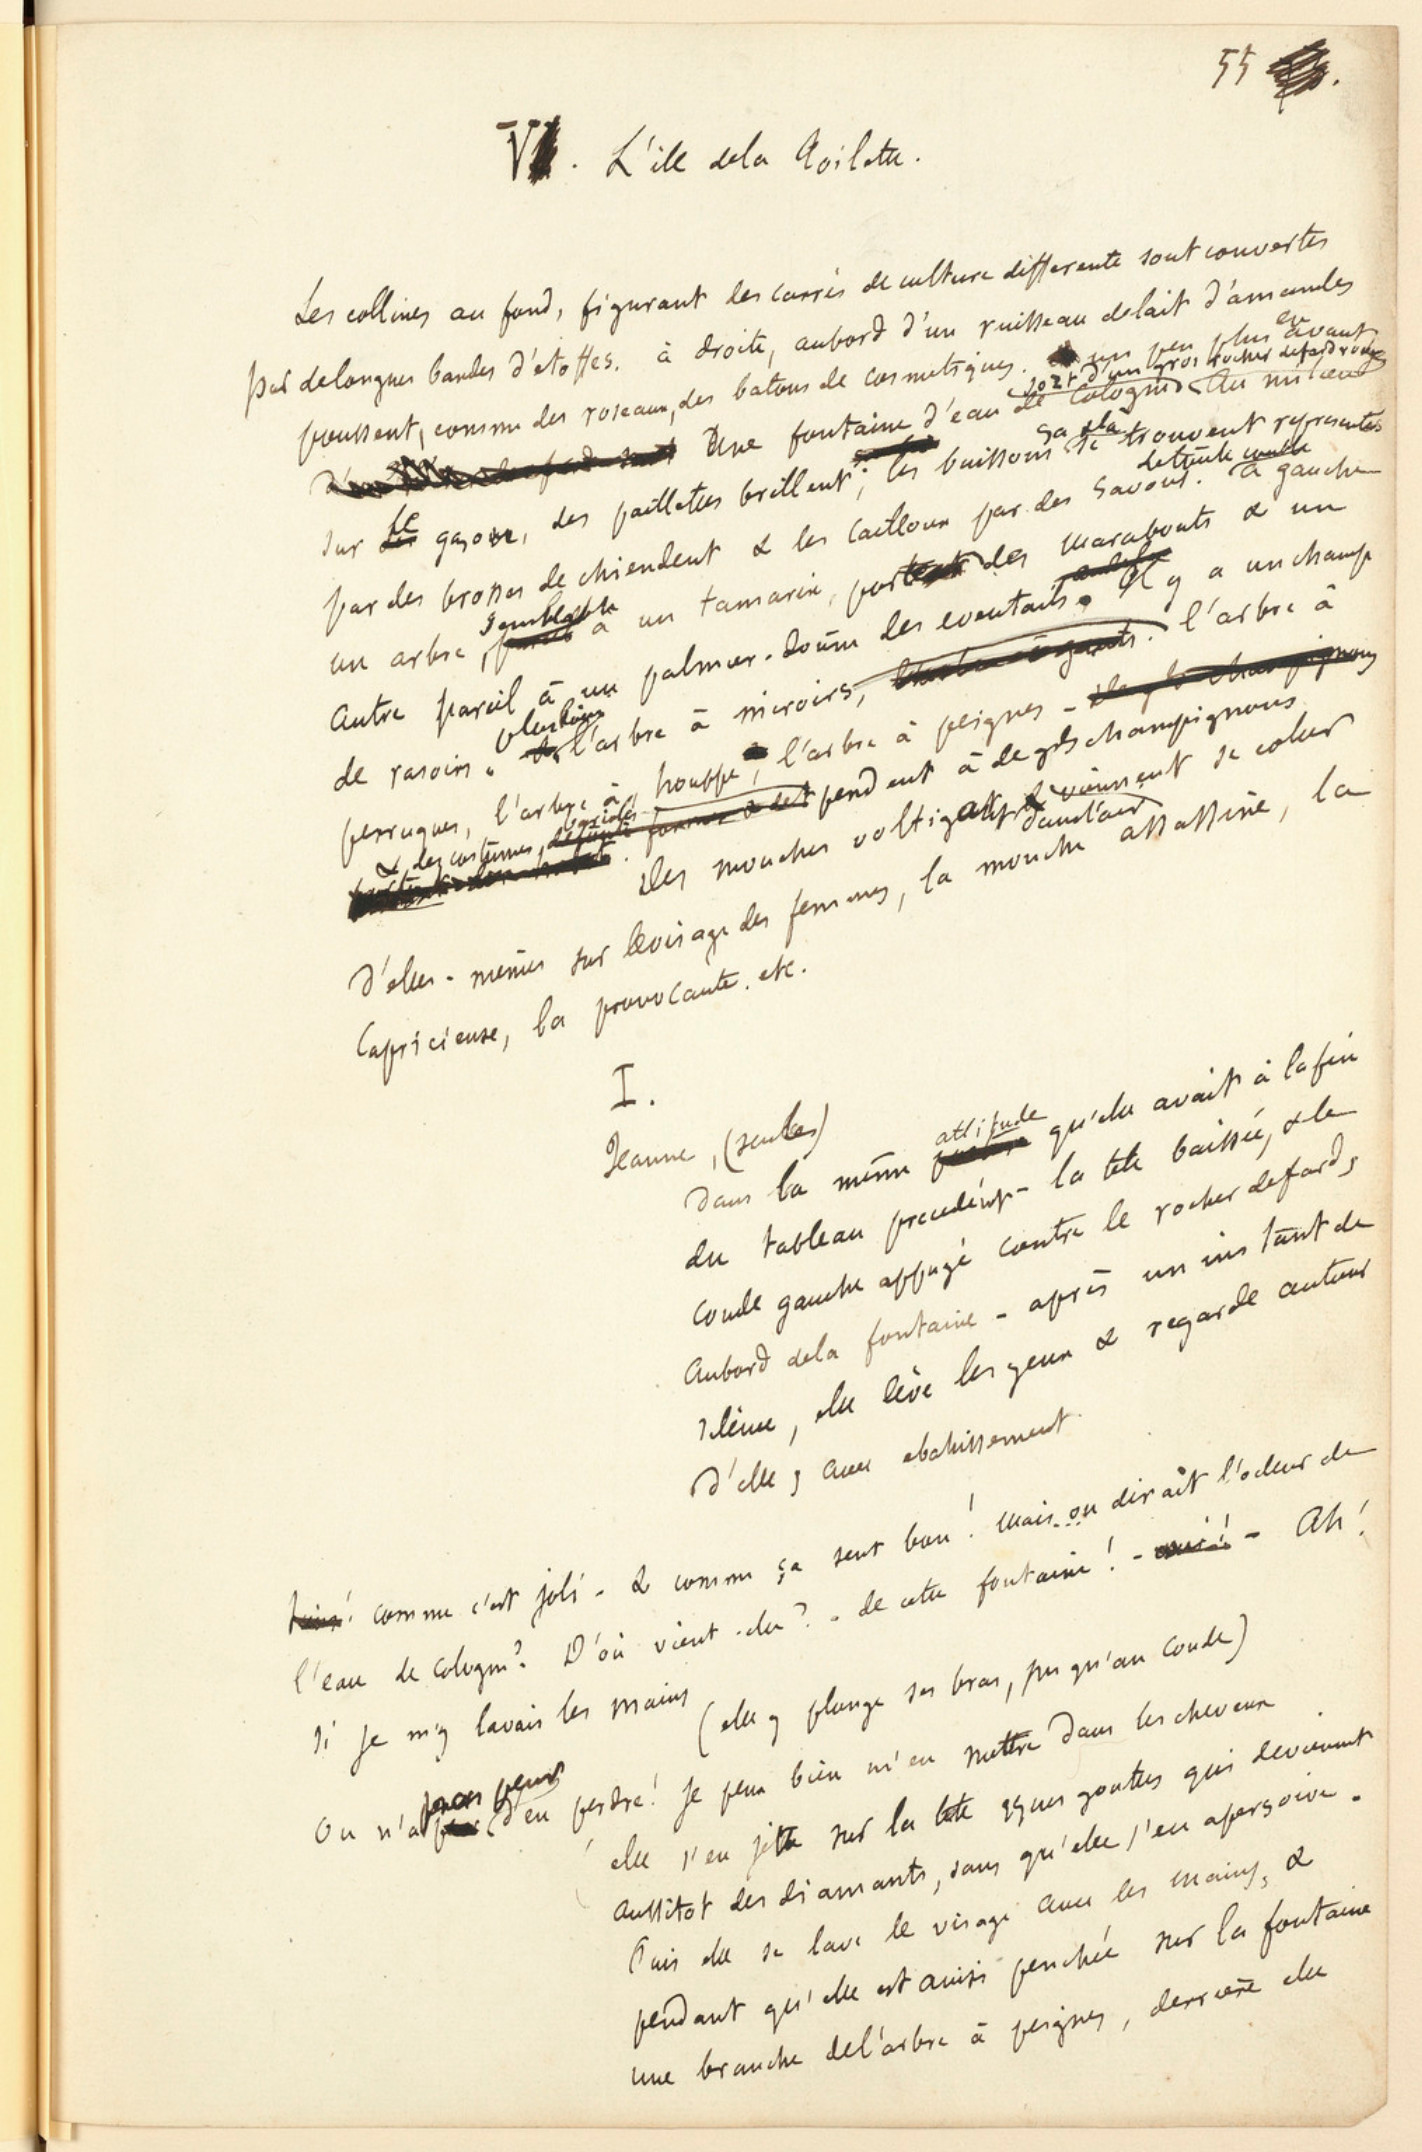 55
V. L'ile dela Toilette.
Les collines au fond, figurant des carrés de culture differente sont couvertes
par delongues bandes d'étoffes. à droite, aubord d'un ruisseau delait d'amandes
poussent, comme des roseaux, des batons de cosmetiques. un peu plus en avant
Une fontaine d'eau de Cologne sort d'un gros rocher defard rouge. Au milieu
sur le gazon, des paillettes brillent; les buissons çà & là se trouvent representés
par des brosses de chiendent & les cailloux par des savons. à gauche
un arbre, semblable à un tamarin, porte des marabouts & un
autre pareil à un palmier-doum des eventails. Il y a un champ
de rasoirs. plus loin l'arbre à miroirs, l'arbre à
perruques, l'arbre à houppe, l'arbre à peignes -
& des costumes, variés pendent à de gds champignons.
Des mouches voltigeant dans l'air viennent se coller
d'elles-mêmes sur levisage des femmes, la mouche assassine, la
Capricieuse, la provocante. etc.
I.
Jeanne, (seule)
Dans la même attitude qu'elle avait à lafin
du tableau precedent - la tête baissée, & le
coude gauche appuyé contre le rocher defard,
Aubord dela fontaine - après un instant de
silence, elle lève les yeux & regarde autour
d'elle, avec ebahissement.
comme c'est joli - & comme ça sent bon! mais on dirait l'odeur de
l'eau de cologne? D'où vient-elle? - de cette fontaine! - oui! - Ah!
si je m'y lavais les mains
(elle y plonge ses bras, jusqu'au coude)
On n'a pas peur d'en perdre! je peux bien m'en mettre dans les cheveux
elle s'en jette sur la tête qques gouttes qui deviennent
aussitot des diamants, sans qu'elle s'en aperçoive.
Puis elle se lave le visage avec les mains, &
pendant qu'elle est ainsi penchée sur la fontaine
une branche del'arbre à peignes, derrière elle